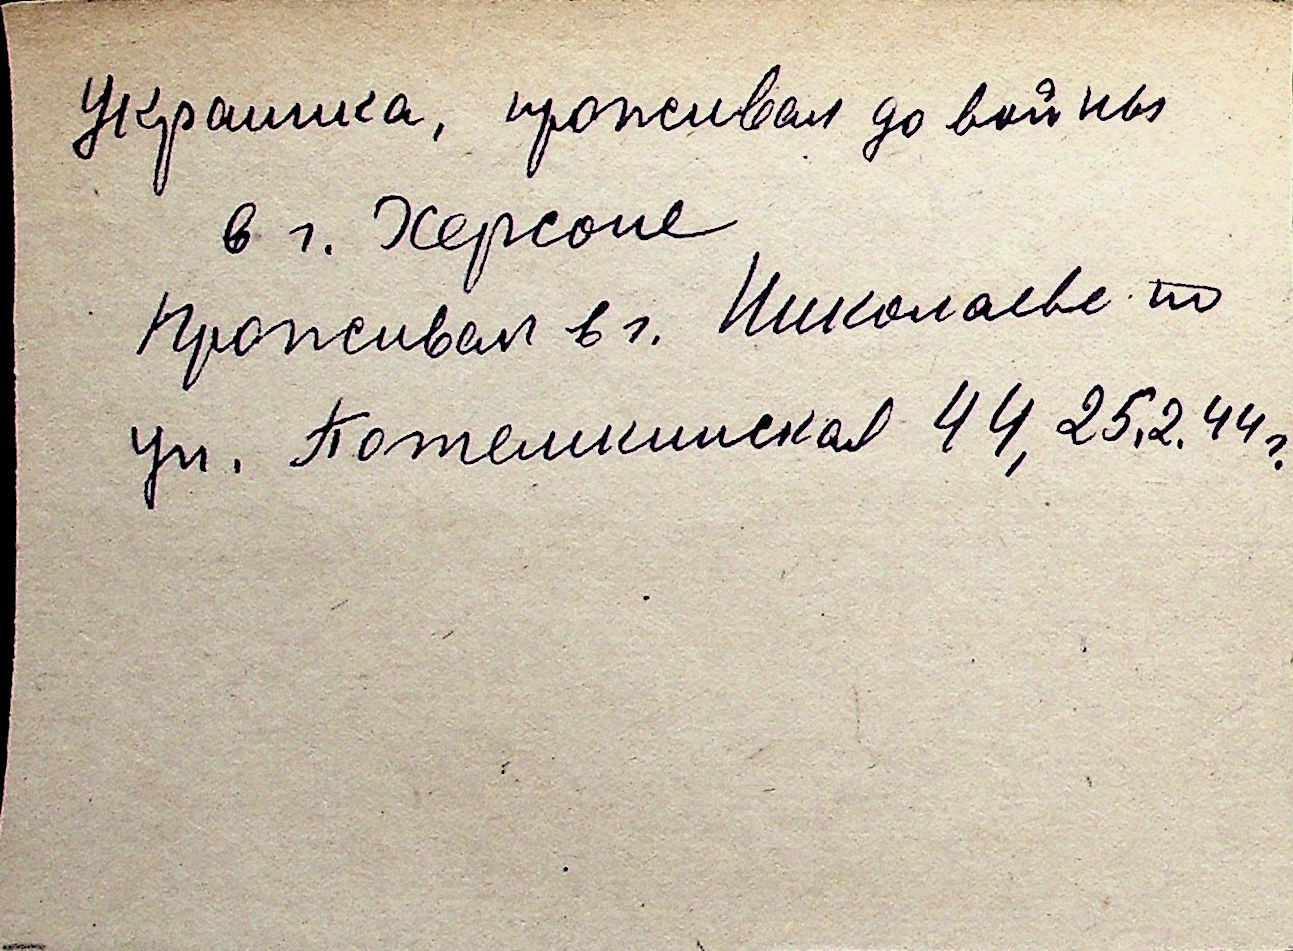 Украинка, проживал до войны
в г. Херсоне
Проживал в г. Николаеве по
ул. Потемкинская 44, 25.2.44 г.